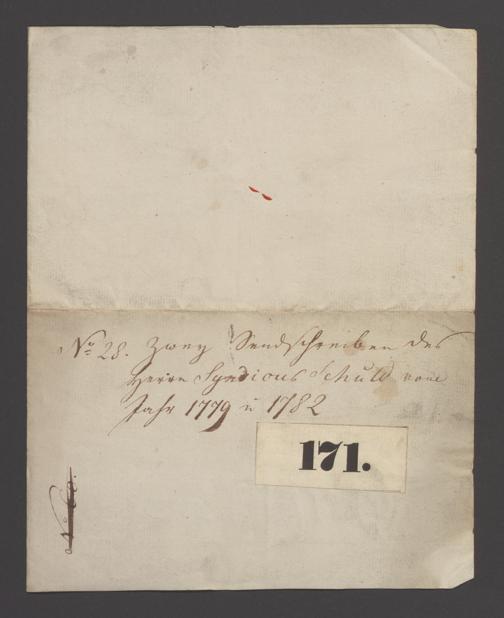 No 28. Zwey Sendschreiben des
Herrn Syndicus Schuld vom
Jahr 1779 u 1782
171.